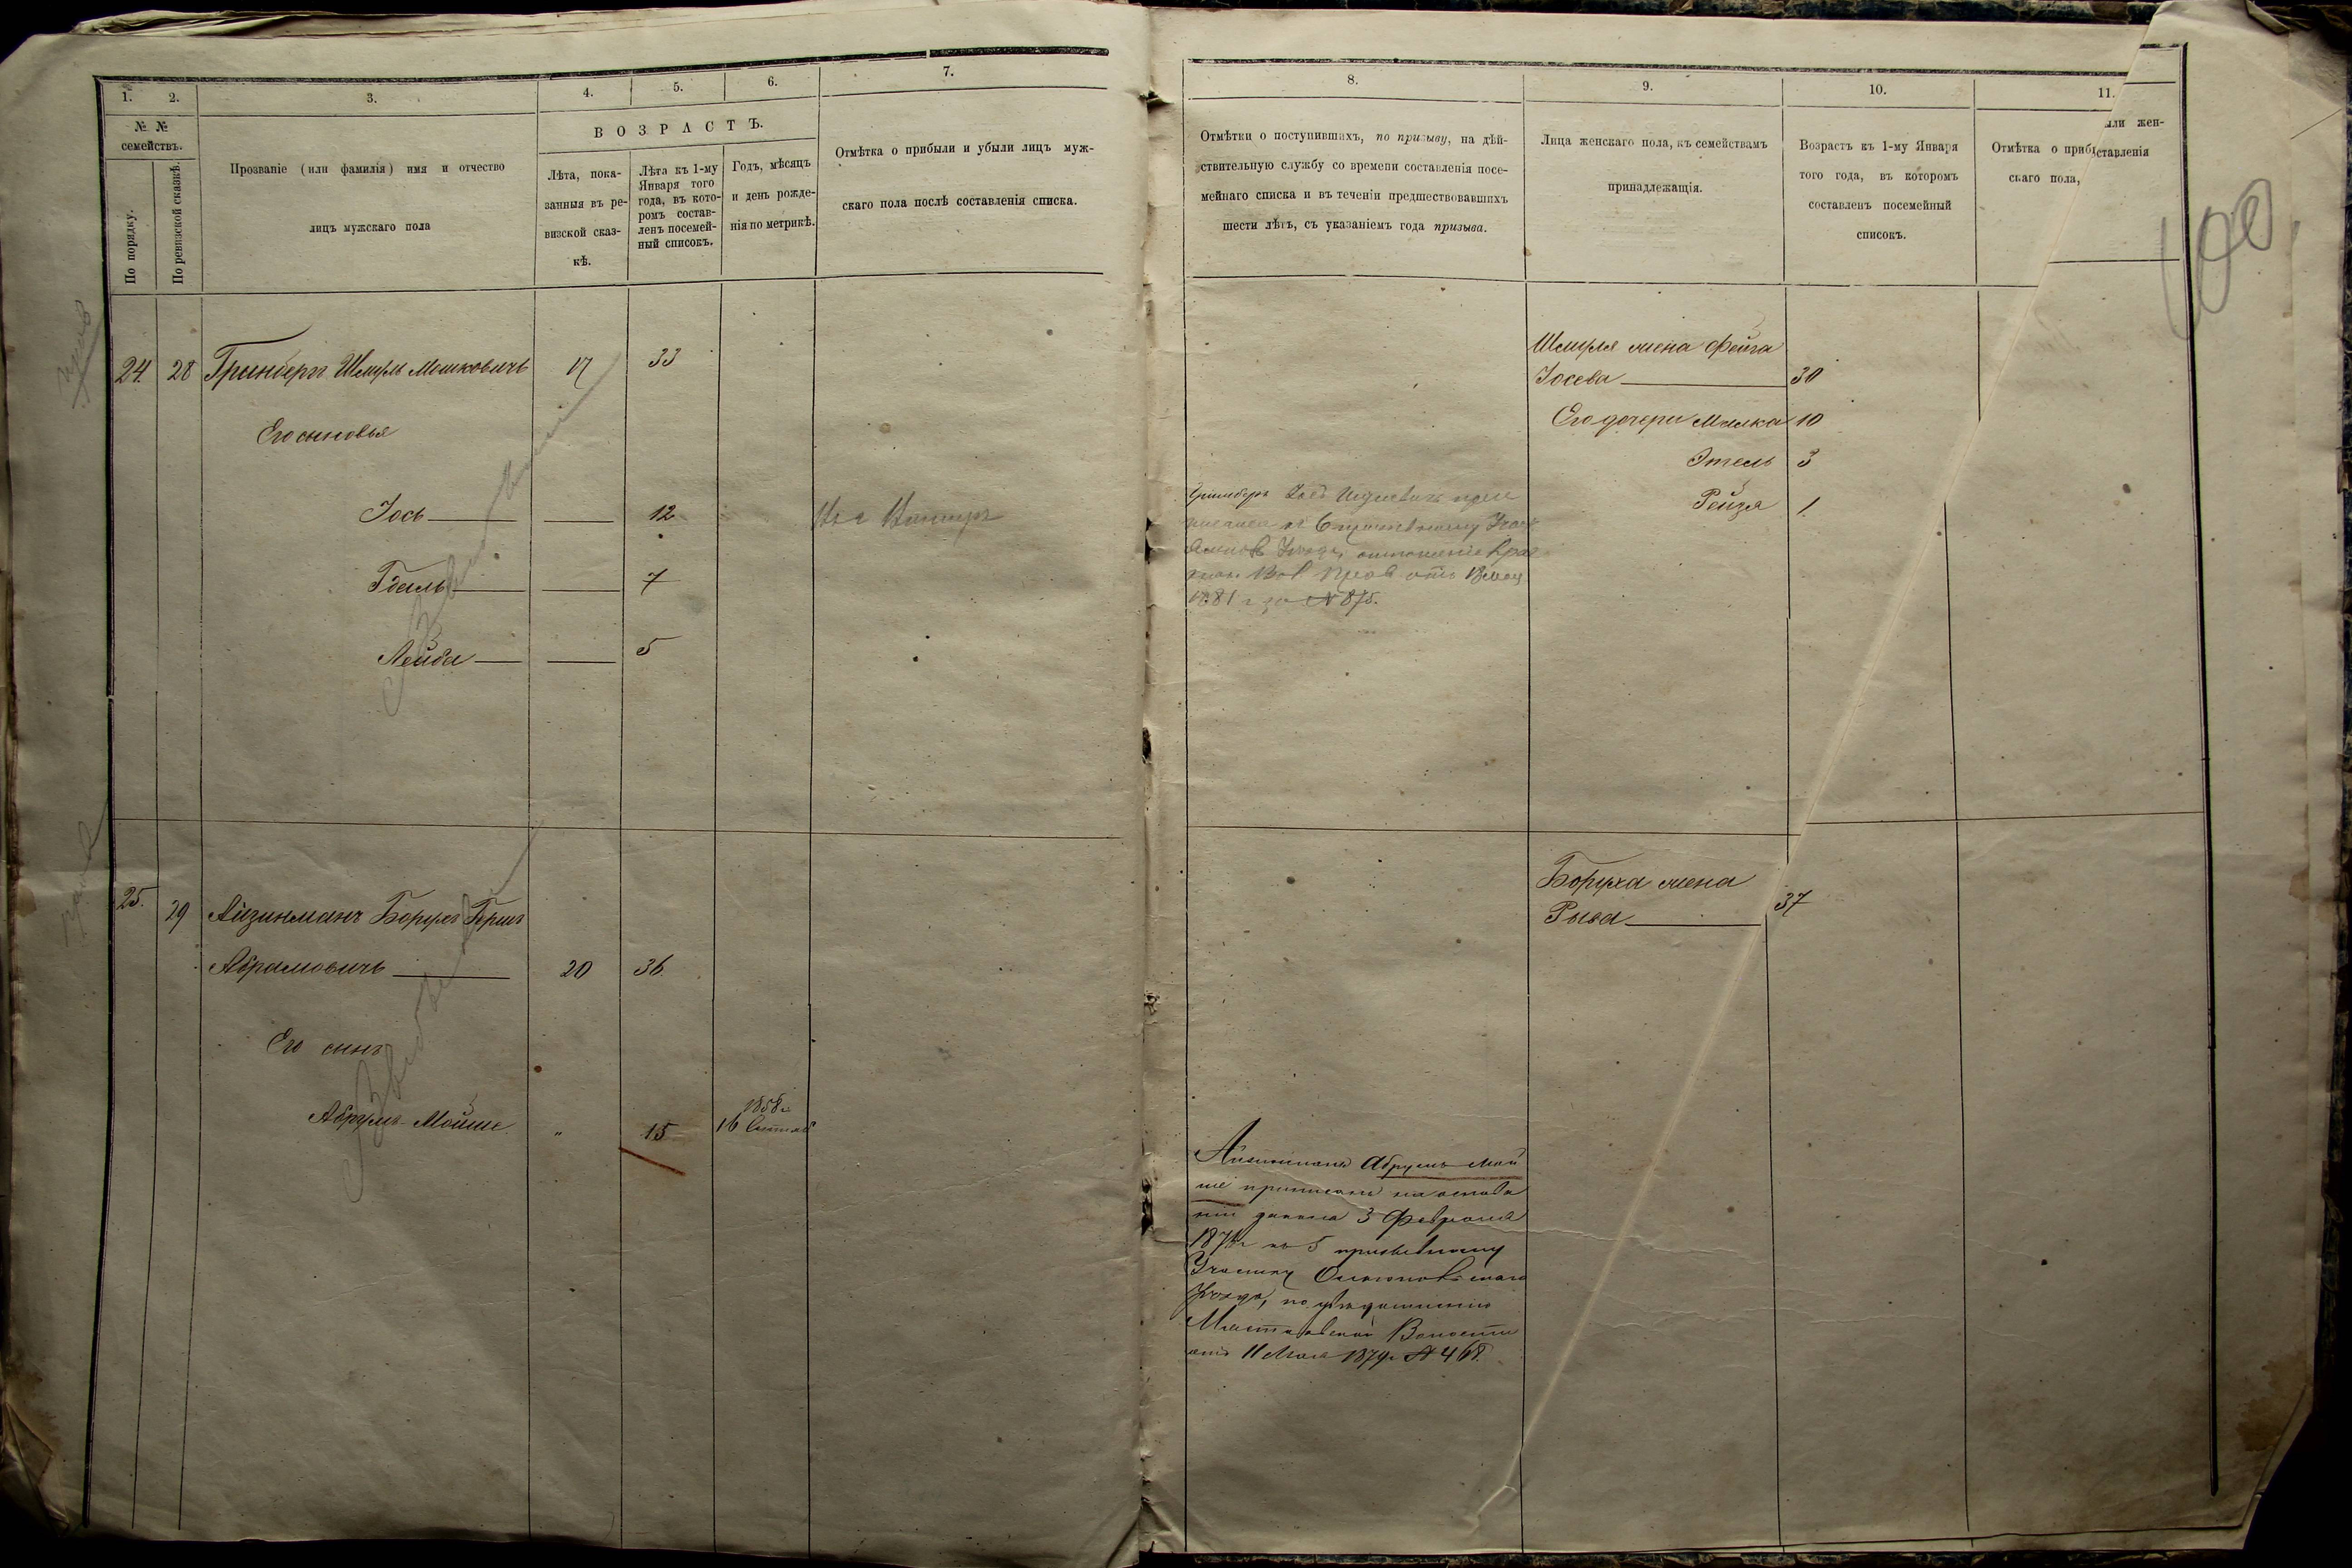 1. 2. 3. 4. 5. 6. 7.
№ №
семействъ.
По порядку.
По ревизской сказкѣ.
Прозваніе (или фамилія) имя и отчество
лицъ мужскаго пола
ВОЗРАСТЪ.
Лѣта, пока-
занныя въ ре-
визской сказ-
кѣ.
Лѣта къ 1-му
Января того
года, въ кото-
ромъ состав-
ленъ посемей-
ный списокъ.
Годъ, мѣсяцъ
и день рожде-
нія по метрикѣ.
Отмѣтка о прибыли и убыли лицъ муж-
скаго пола послѣ составленія списка.
24. 28 Гринбергъ Шмуль Мошковичъ 17 33
Его сыновья
Іось 12
Гдаль 7
Лейба 5
25. 29 Айзинманъ Борухъ Гершъ
Абрамовичъ 20 36
Его сынъ
1858 г.
Абрумъ-Мойше " 15 16
8. 9. 10. 11.
Отмѣтки о поступившихъ, по призыву, на дѣй-
ствительную службу со времени составленія посе-
мейнаго списка и въ теченіи предшествовавшихъ
шести лѣтъ, съ указаніемъ года призыва.
Лица женскаго пола, къ семействамъ
принадлежащія.
Возрастъ къ 1-му Января
того года, въ которомъ
составленъ посемейный
списокъ.
Отмѣтка о приб
скаго пола,
ыли жен-
ставленія
100
Шмуля жена Фейга
Іосева 30
Его дочери Малка 10
Этель 3
Рейзя 1
Гринберъ Іось
къ 6 призывному
Уѣзда, отношеніе
Вол. Прав отъ
1881 г за № 875.
Боруха жена
Рыва 37
Айзинманъ Абрумъ Мой
ше приписанъ на основа
ніи закона 3 Февраля
187 г къ 5 призывному
Участку
Уѣзда, по увѣдомленію
Волости
отъ 11 Мая 1879 г № 468.